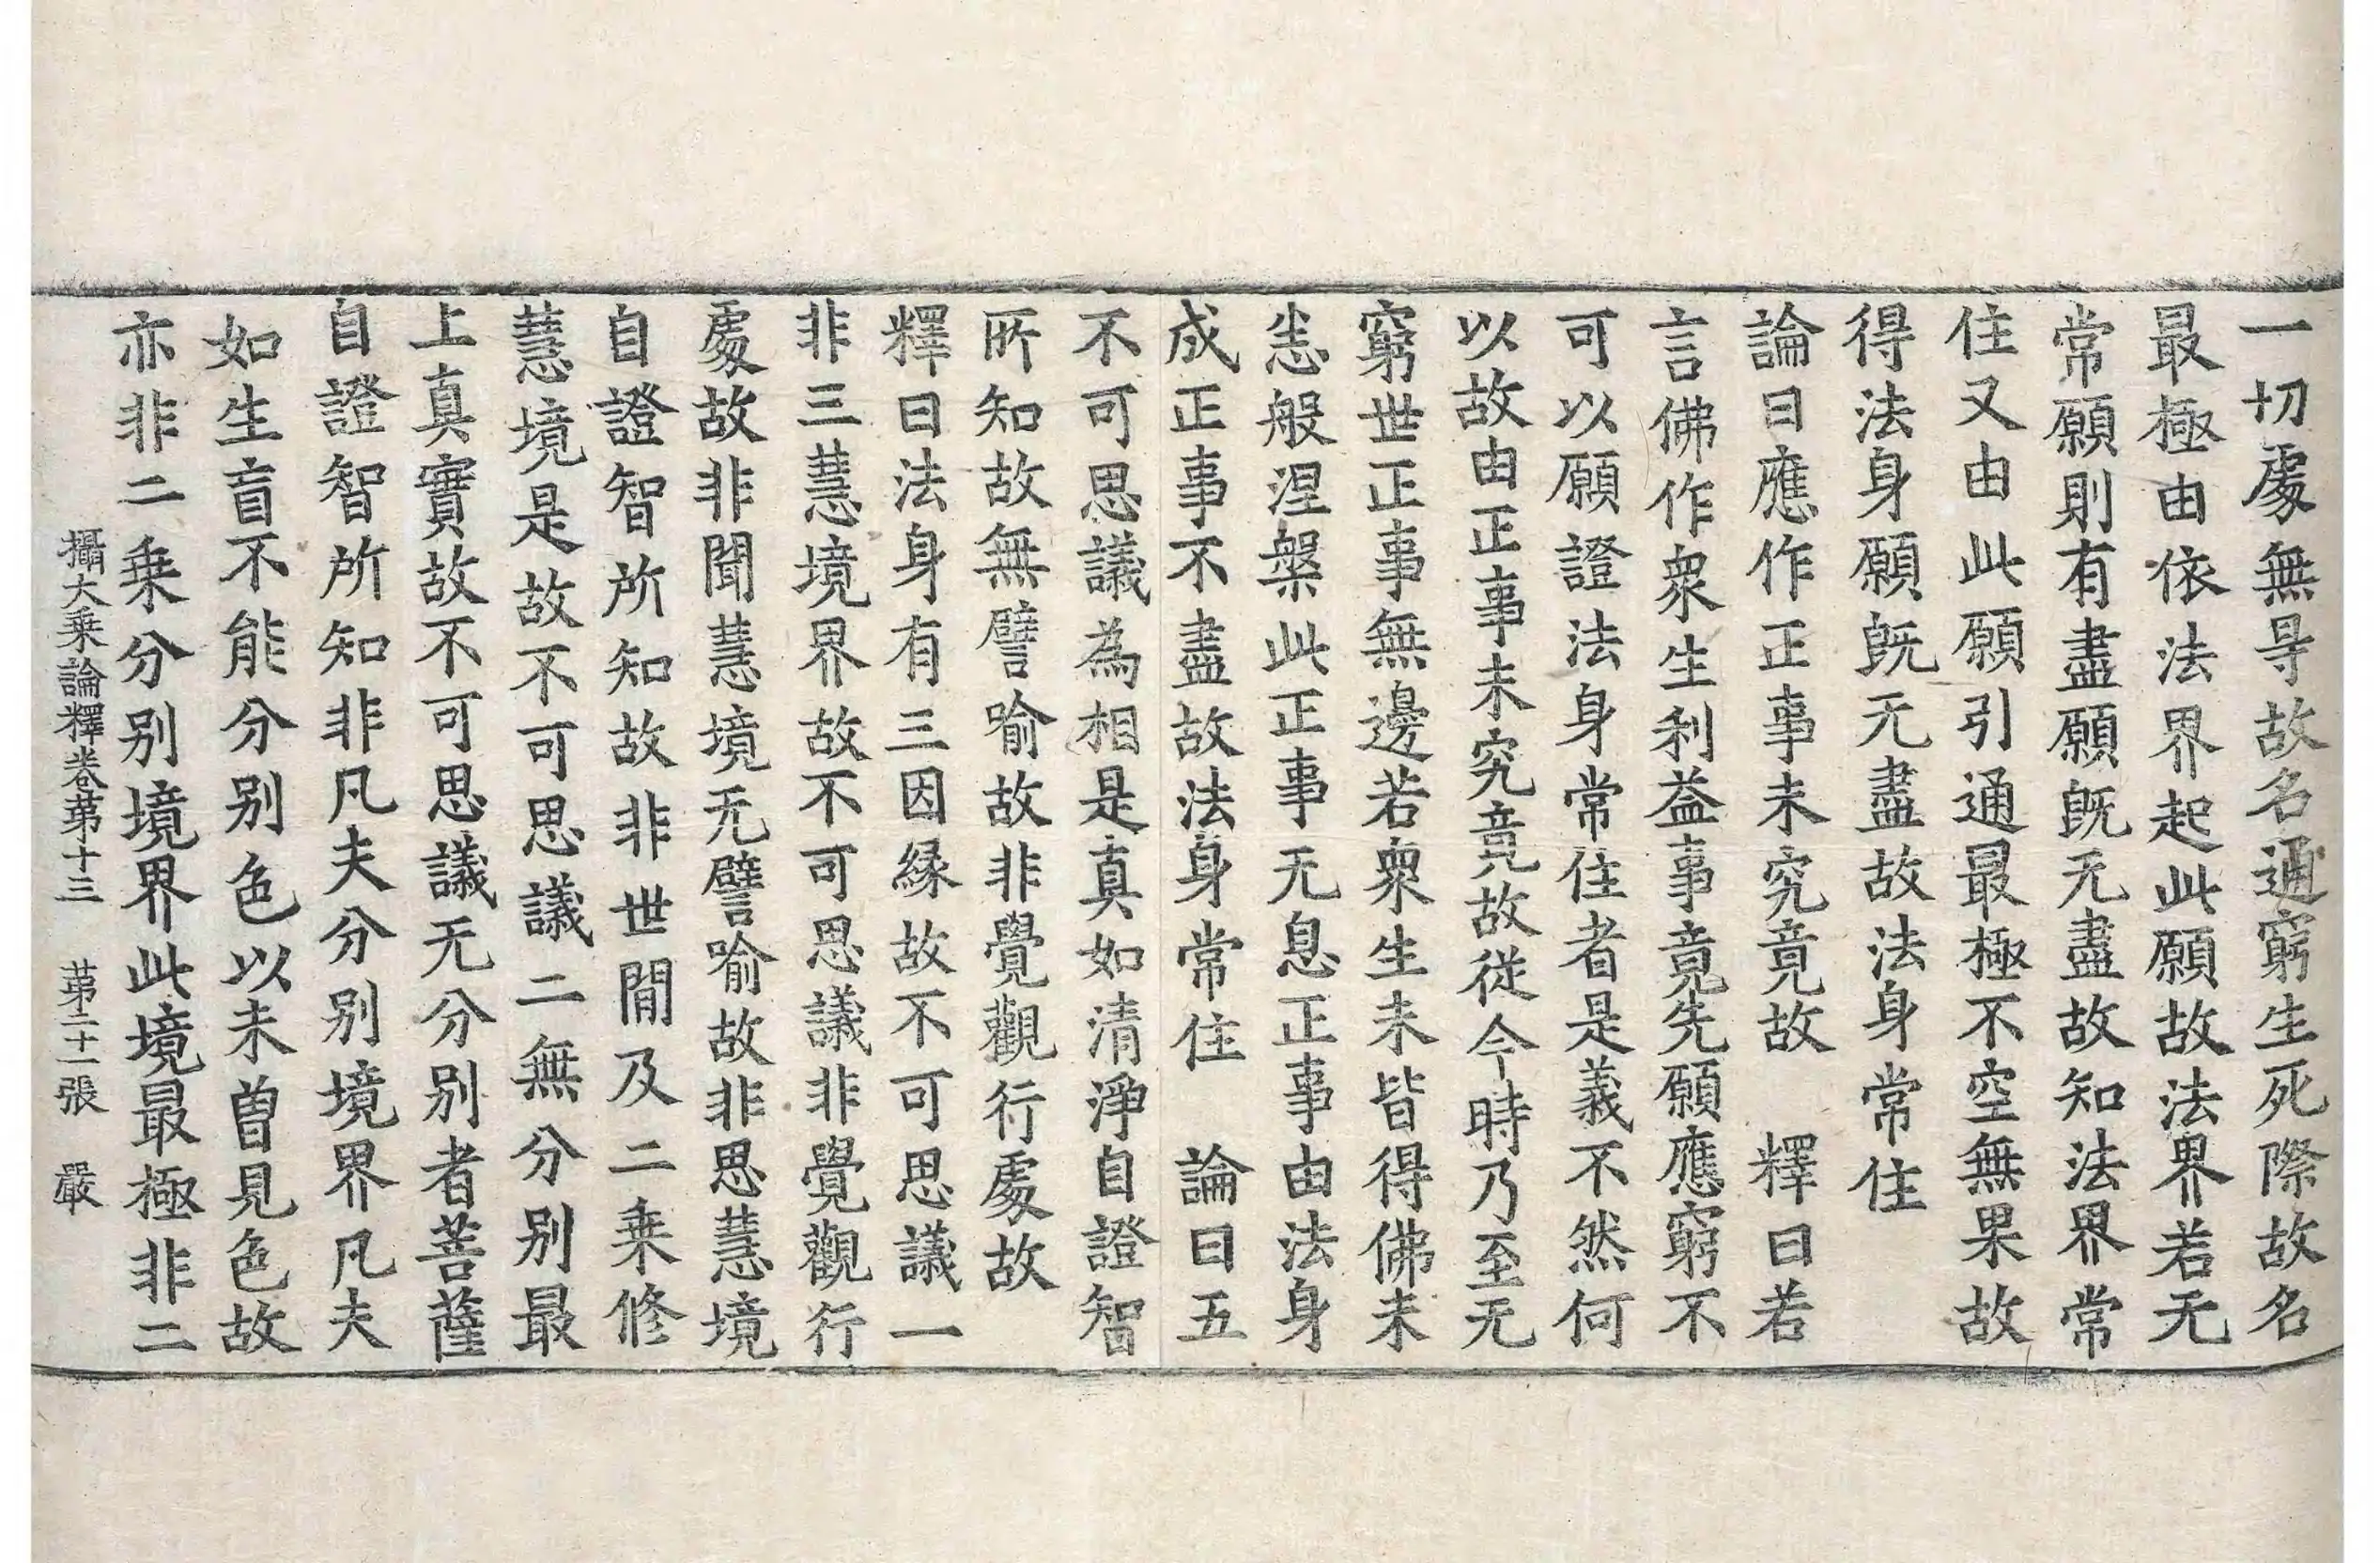 一切處無㝵故名通窮生死際故名
最極由依法界起此願故法界若无
常願則有盡願旣无盡故知法界常
住又由此願引通最極不空無果故
得法身願旣无盡故法身常住
論曰應作正事未究竟故　釋曰若
言佛作衆生利益事竟先願應窮不
可以願證法身常住者是義不然何
以故由正事未究竟故從今時乃至无
窮世正事無邊若衆生未皆得佛未
悉般涅槃此正事无息正事由法身
成正事不盡故法身常住　論曰五
不可思議為相是真如清淨自證智
所知故無譬喻故非覺觀行處故
釋曰法身有三因緣故不可思議一
非三慧境界故不可思議非覺觀行
處故非聞慧境无譬喻故非思慧境
自證智所知故非世閒及二乗修
慧境是故不可思議二無分別最
上真實故不可思議无分別者菩薩
自證智所知非凡夫分別境界凡夫
如生盲不能分別色以未曽見色故
亦非二乗分別境界此境最極非二
攝大乗論釋卷苐十三　苐二十一張　嚴